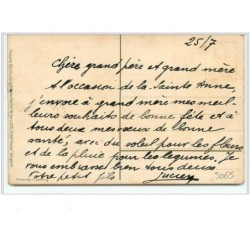 25/7
Chère grand père et grand mère
A l'occasion de la Sainte Anne,
j'envoie à grand mère mes meil-
leurs souhaits de bonne fête et à
tous deux mes vœux de bonne
santé, avec du soleil pour les fleurs
et de la pluie pour les légumes. Je
vous embrasse bien tous deux
Votre petit fils